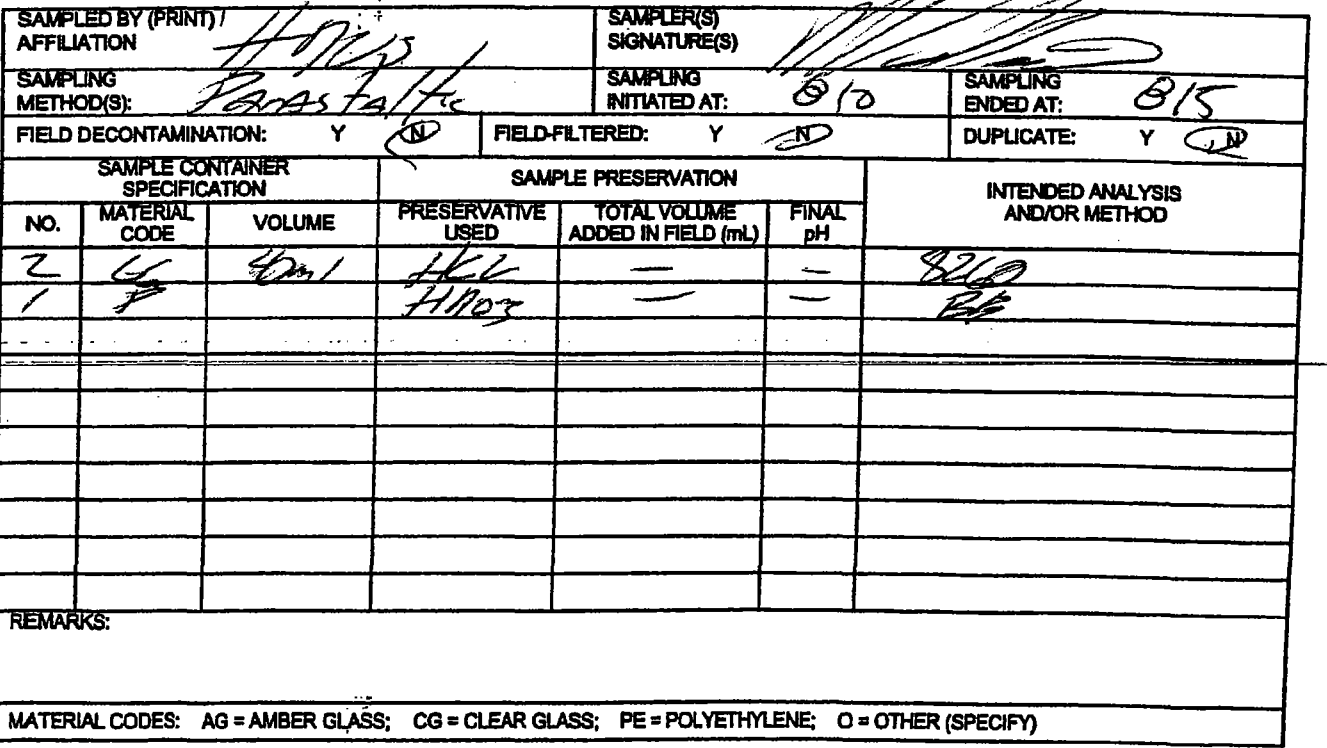 SAMPLED BY (PRINT) / AFFILIATION
SAMPLER(S) SIGNATURE(S)
SAMPLING METHOD(S): Parastaltic
SAMPLING INITIATED AT: 810
SAMPLING ENDED AT: 815
FIELD DECONTAMINATION: Y N
FIELD-FILTERED: Y N
DUPLICATE: Y N
SAMPLE CONTAINER SPECIFICATION
SAMPLE PRESERVATION
INTENDED ANALYSIS AND/OR METHOD
NO.
MATERIAL CODE
VOLUME
PRESERVATIVE USED
TOTAL VOLUME ADDED IN FIELD (mL)
FINAL pH
2 40ml HCL — — 8260
1 P HNO3 — —
REMARKS:
MATERIAL CODES: AG = AMBER GLASS; CG = CLEAR GLASS; PE = POLYETHYLENE; O = OTHER (SPECIFY)